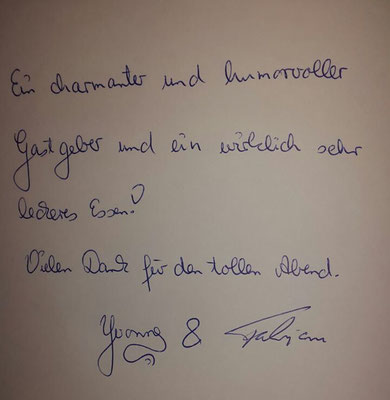 Ein charmanter und humorvoller
Gastgeber und ein wirklich sehr
leckeres Essen!
Vielen Dank für den tollen Abend.
Yvonne & Fabijan